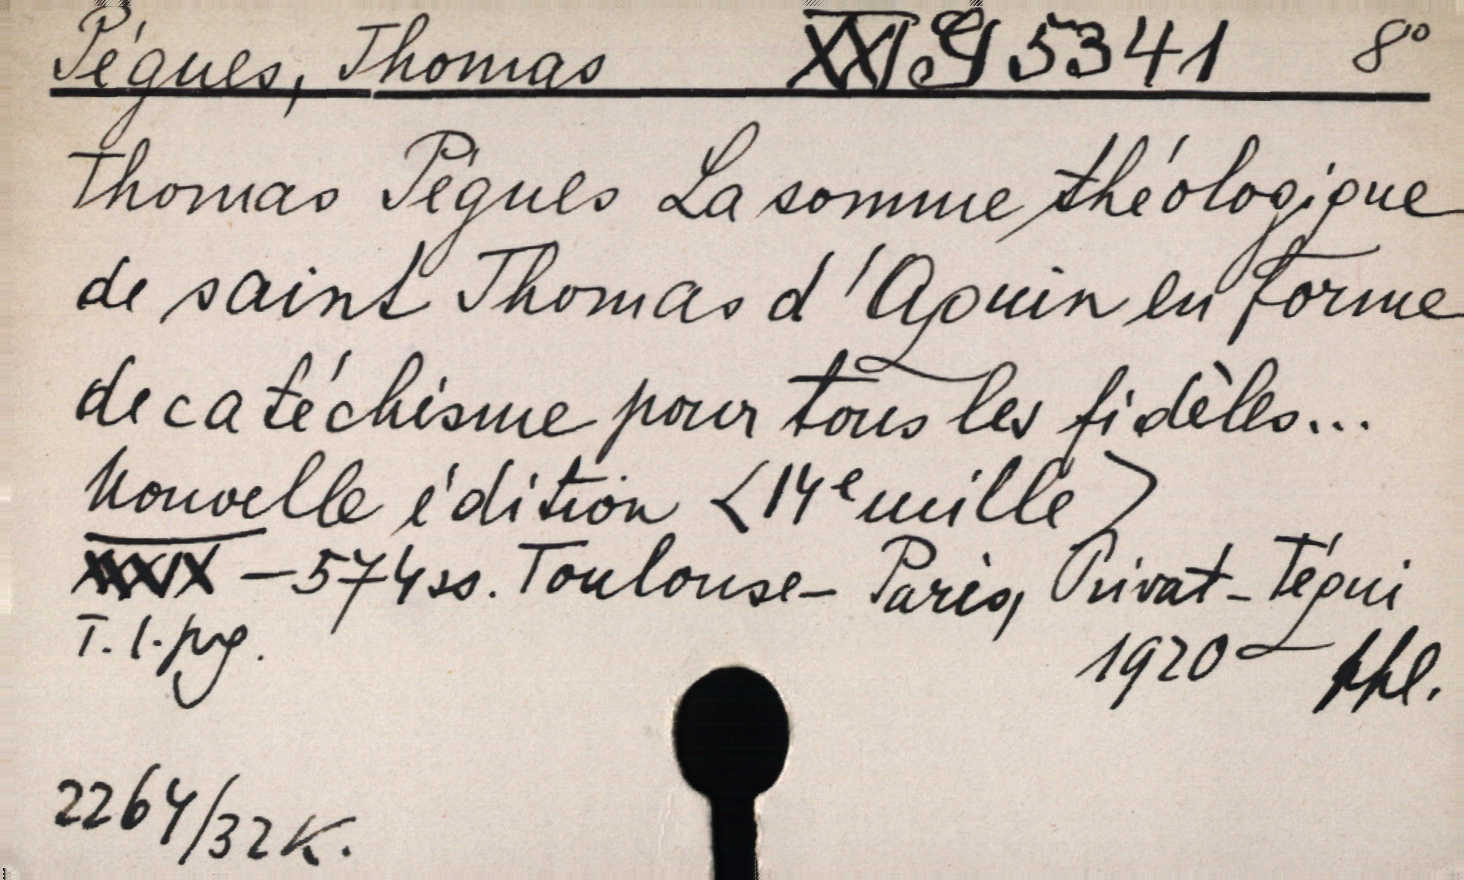 Pégues, Thomas XXI G 5341 8°
Thomas Pégues La somme théologique
de saint Thomas d'Aquin en forme
de catéchisme pour tous les fidèles...
Nouvelle édition <14e mille>
XXXIX - 574 ss. Toulouse - Paris, Privat - Téqui
T. l. pg. 1920 ppl.
2264/32 K.